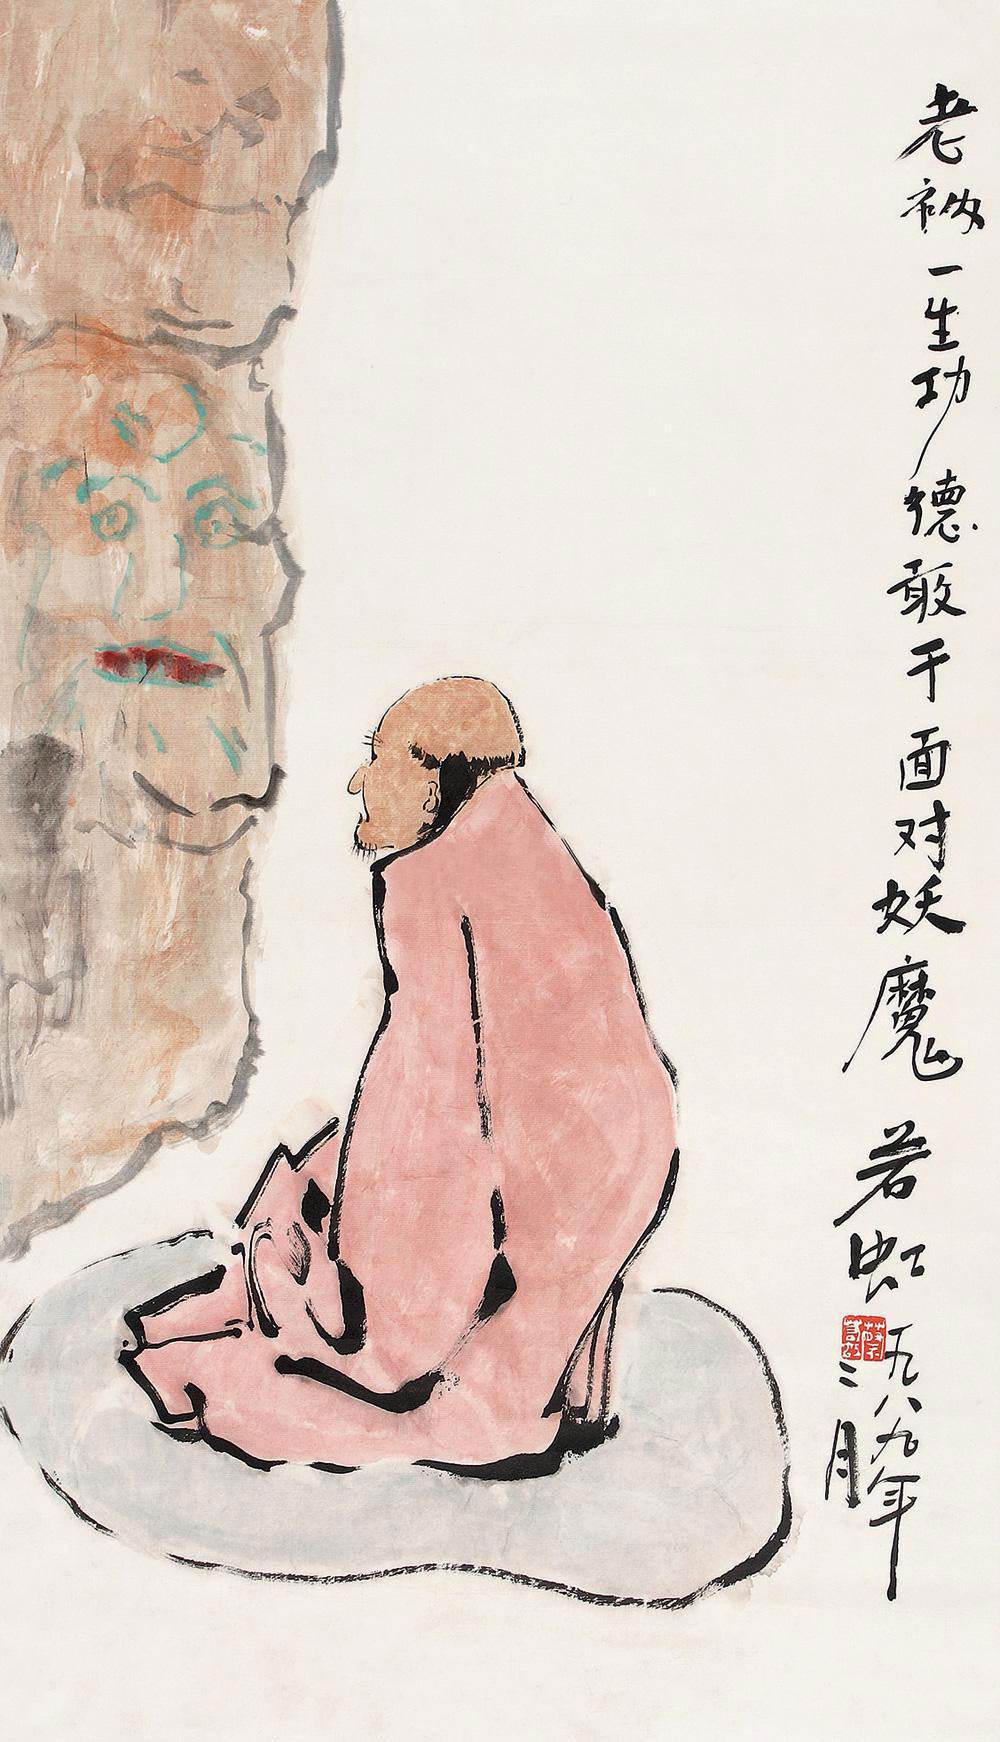 老衲一生功德敢于面对妖魔 若虹 一九八九年
二月